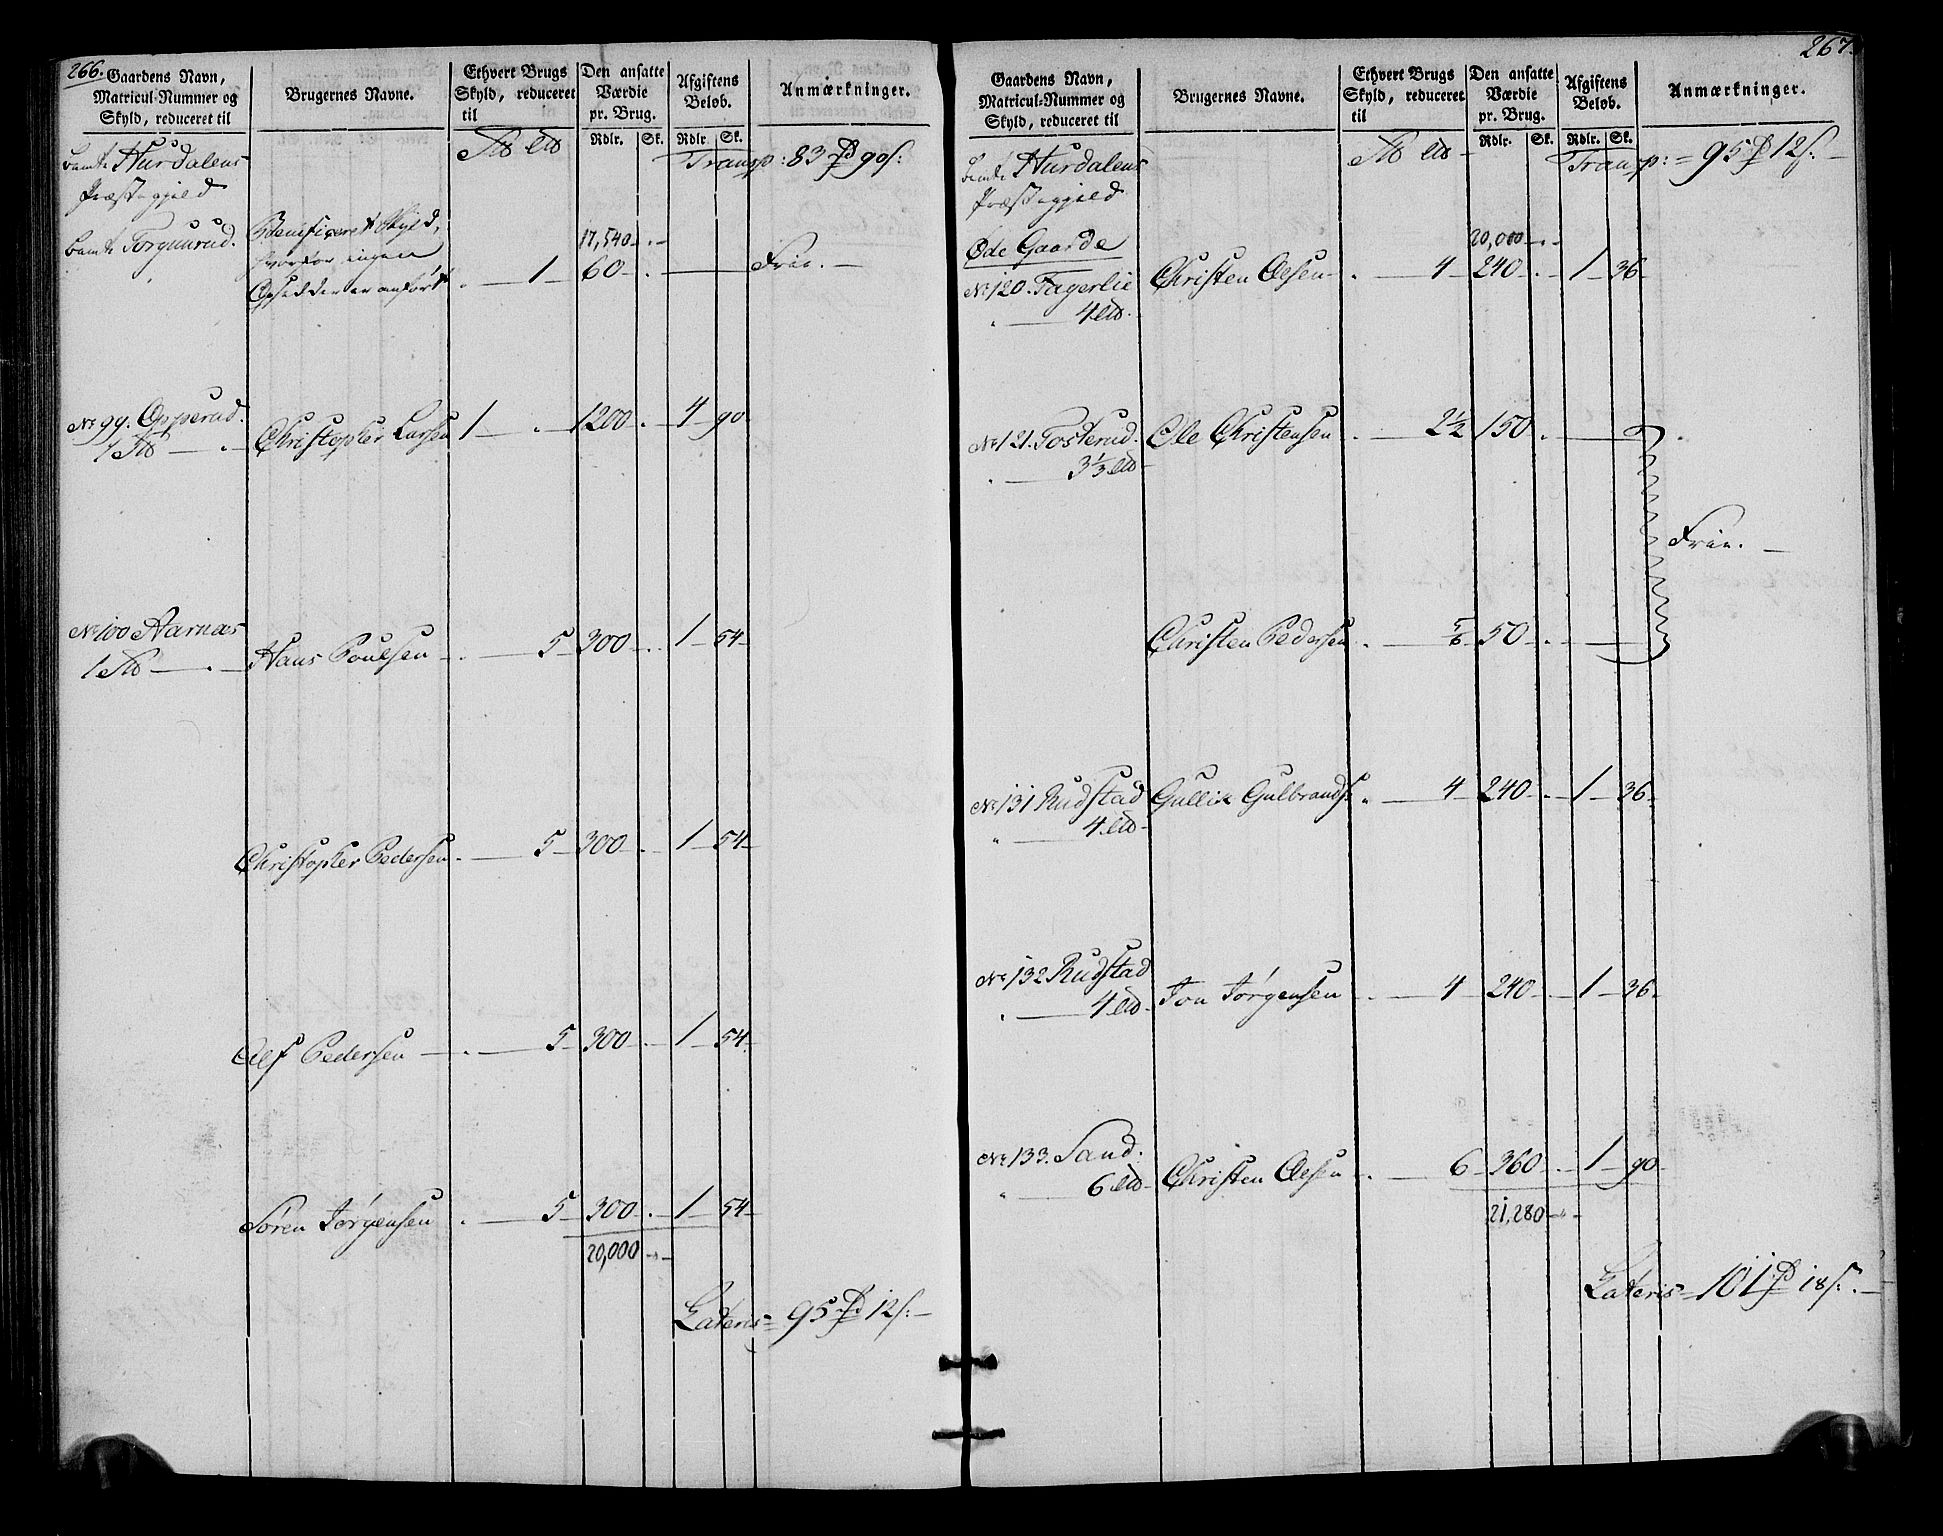 266.
Gaardens Navn,
Matricul-Nummer og
Skyld, reduceret til
Brugernes Navne.
Ethvert Brugs
Skyld, reduceret
til
Den ansatte
Værdie
pr. Brug.
Rdlr. Sk.
Afgiftens
Beløb.
Rdlr. Sk.
Anmærkninger.
Hurdalens
Præstegjeld
Transp: 83 90 s:
Beneficeret Skyld,
hvorfor ingen
Opsidder er anført . 1
17,540 - . -
60 - . Frie. -
No 99. Opperud.
1
Christopher Larsen 1 - . 1200 - . 4 - 90.
No 100 Aarnæs
1
Hans Poulsen - . 5 300 - . 1 - 54 -
Christopher Pedersen . 5 - 300 - . 1 - 54 -
Alf Pedersen - . 5 - 300 - . 1 - 54 -
Søren Jørgensen . 5 - 300 - . 1 - 54 -
20,000 - . -
Lateris = 95 12 s: -
267.
Gaardens Navn,
Matricul-Nummer og
Skyld, reduceret til
Brugernes Navne.
Ethvert Brugs
Skyld, reduceret
til
Den ansatte
Værdie
pr. Brug.
Rdlr. Sk.
Afgiftens
Beløb.
Rdlr. Sk.
Anmærkninger.
Hurdalens
Præstegjeld
Transp: = 95 12 s: -
Øde Gaarde
20,000 - . -
No 120. Fagerlie
4
Christen Olsen . 4 - 240 - . 1 - 36 -
No 121. Tosterud.
3 1/3
Ole Christensen . 2 1/2 150 .
Frie. -
Christen Pedersen . 5/6 50 - .
No 131 Rudstad
4
Gullik Gulbrands: . 4 - 240 - . 1 - 36 -
No 132 Rudstad
4
Jon Jørgensen . 4 - 240 - . 1 - 36 -
No 133. Sand.
6
Christen Olsen . 6 - 360 - . 1 - 90 -
21,280 - . -
Lateris = 101 18 s: -